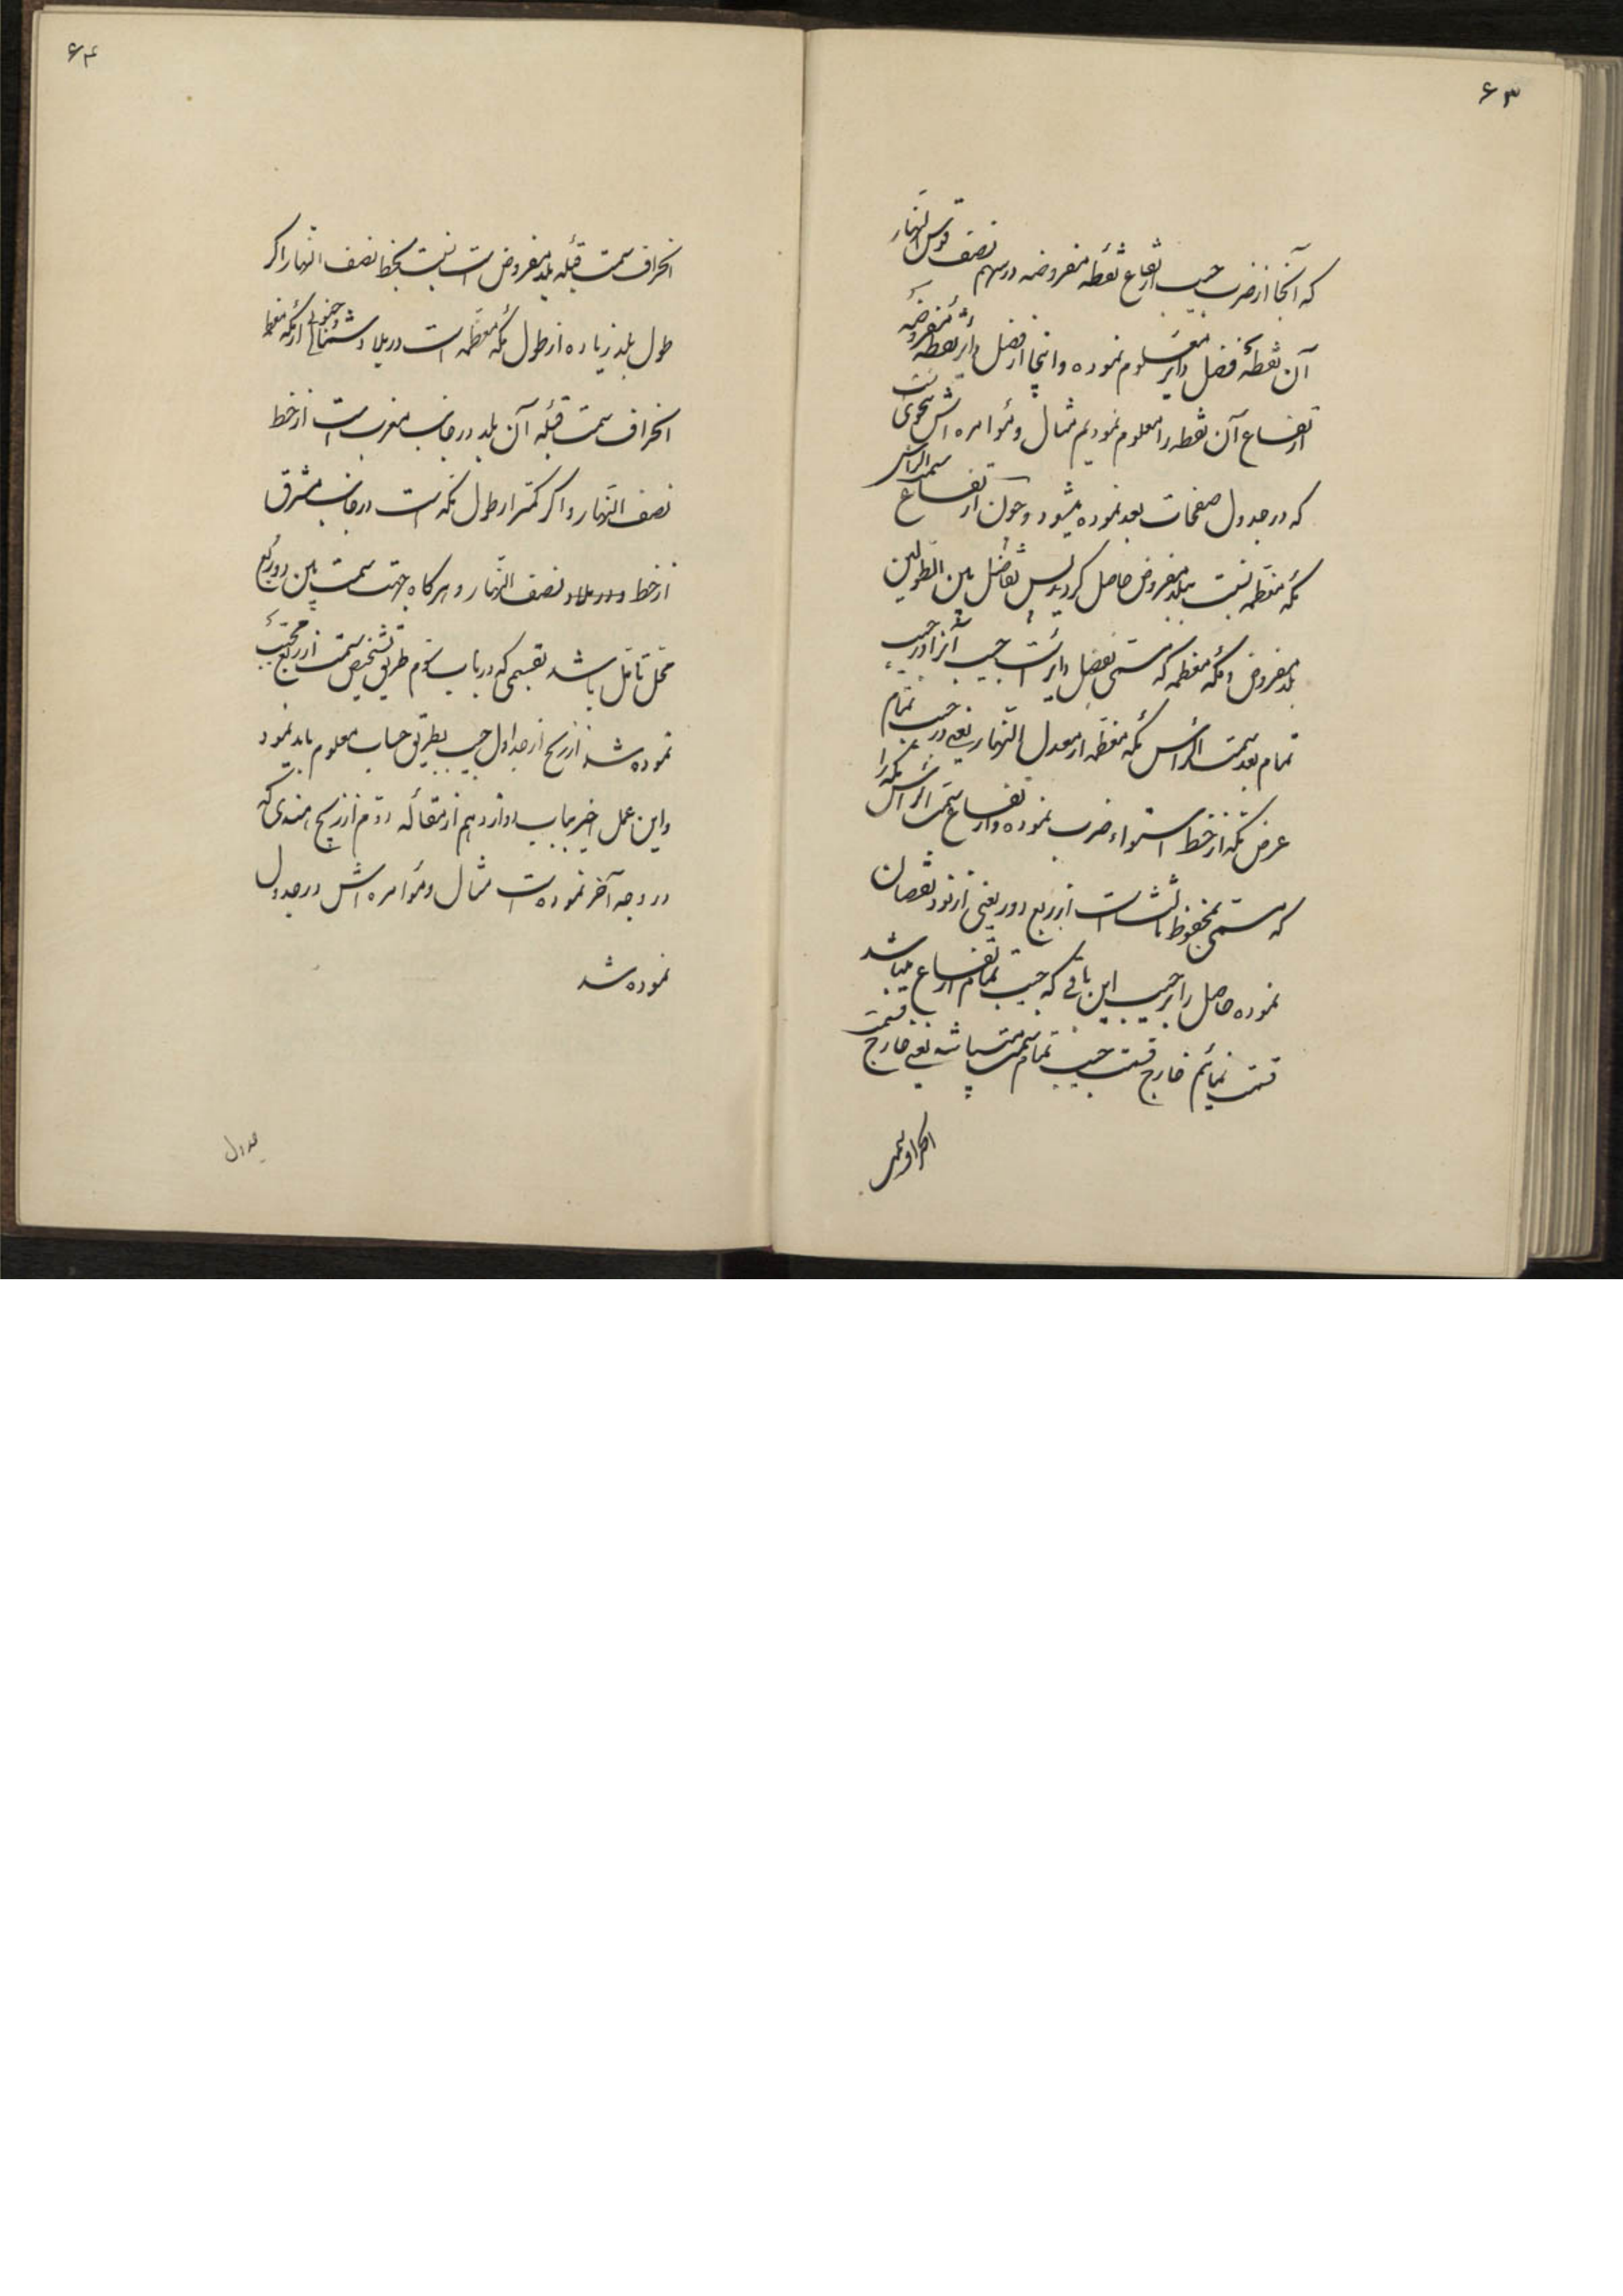 ۶۳
که آنجا از ضرب جیب ارتفاع نقطه مفروضه در سهم نصف قوس النهار
آن نقطه فضل دایر معلوم نموده و اینجا از فضل دایر نقطه مفروضه
ارتفاع آن نقطه را معلوم نمودیم مثال و مؤامره اش بنحوی است
که در جدول صفحات بعد نموده میشود و چون ارتفاع سمت الراس
مکه معظمه نسبت ببلد مفروض حاصل گردید پس تفاضل بین الطولین
بلد مفروض و مکه معظمه که مسمی بفضل دایر است جیب آنرا در جیب
تمام بعد سمت الرأس مکه معظمه از معدل النهار یعنی در جیب تمام
عرض مکه از خط استواء ضرب نموده و ارتفاع سمت الرأس مکه را
که مسمی بمحفوظ ثالث است از ربع دور یعنی از نود نقصان
نموده حاصل را بر جیب این باقی که جیب تمام ارتفاع میباشد
قسمت نمائیم خارج قسمت جیب تمام سمت باشد یعنی خارج قسمت
۶۴
انحراف سمت قبله بلد مفروض است نسبت بخط نصف النهار اگر
طول بلد زیاده از طول مکه معظمه است در بلاد شمالی و جنوبی از مکه معظمه
انحراف سمت قبله آن بلد در جانب مغرب است از خط
نصف النهار و اگر کمتر از طول مکه است در جانب مشرق
از خط نصف النهار و هرگاه جهت سمت بین دو ربع
محل تأمل باشد بقسمی که در باب سوم طریق تشخیص سمت از ربع مجیب
نموده شد از زیج از جداول جیب بطریق حساب معلوم باید نمود
و این عمل اخیر بباب دوازدهم از مقاله دوم از زیج هندی که
در وجه آخر نموده است مثال و مؤامره اش در جدول
نموده شد
جدول